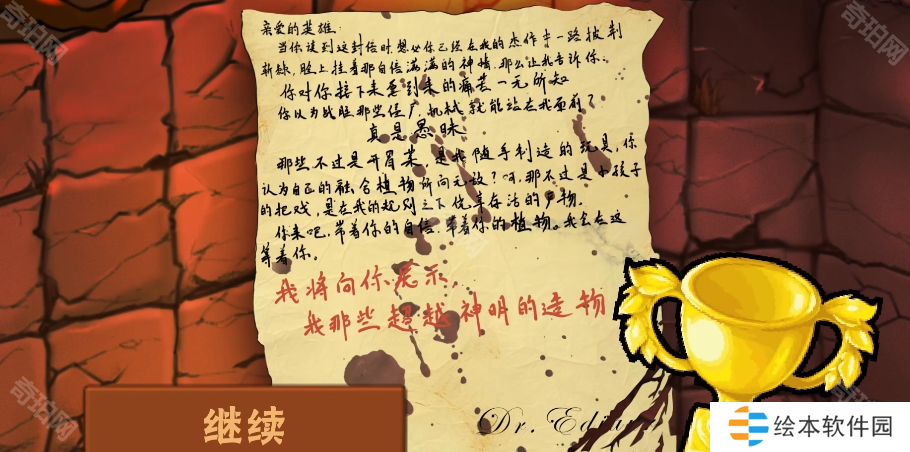 亲爱的英雄:
当你读到这封信时想必你已经在我的杰作中一路披荆
斩棘,脸上挂着那自信满满的神情,那么让我告诉你:
你对你接下来要到来的痛苦一无所知
你以为战胜那些僵尸机械就能站在我面前?
真是愚昧
那些不过是开胃菜,是我随手制造的玩具,你
认为自己的融合植物所向无敌?呵,那不过是小孩子
的把戏,是在我的规则之下侥幸存活的产物.
你来吧,带着你的自信,带着你的植物。我会在这
等着你。
我将向你展示,
我那些超越神明的造物
Dr. Ed
继续
奇珀网
绘本软件园